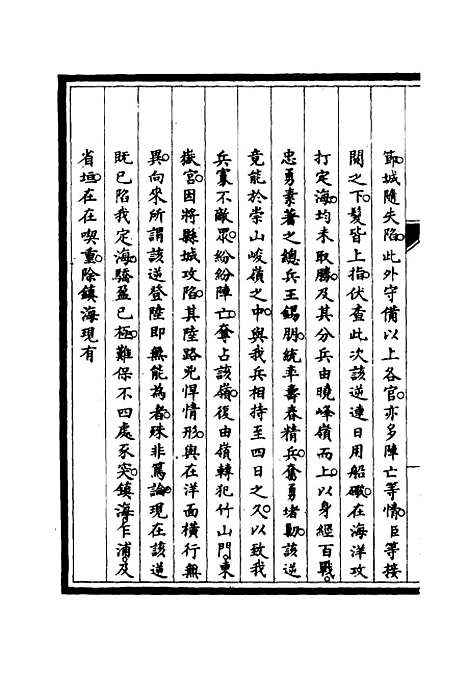 節城隨失陷此外守備以上各官亦多陣亡等情臣等接
閱之下髮皆上指伏查此次該逆連日用船礮在海洋攻
打定海均未取勝及其分兵由曉峰嶺而上以身經百戰
忠勇素著之總兵王錫朋統率壽春精兵奮勇堵勦該逆
竟能於崇山峻嶺之中與我兵相持至四日之久以致我
兵寡不敵眾紛紛陣亡奪占該嶺復由嶺轉犯竹山門東
嶽宮因將縣城攻陷其陸路兇悍情形與在洋面橫行無
異向來所謂該逆登陸即無能為者殊非篤論現在該逆
既已陷我定海驕盈已極難保不四處豕突鎮海乍浦及
省垣在在喫重除鎮海現有